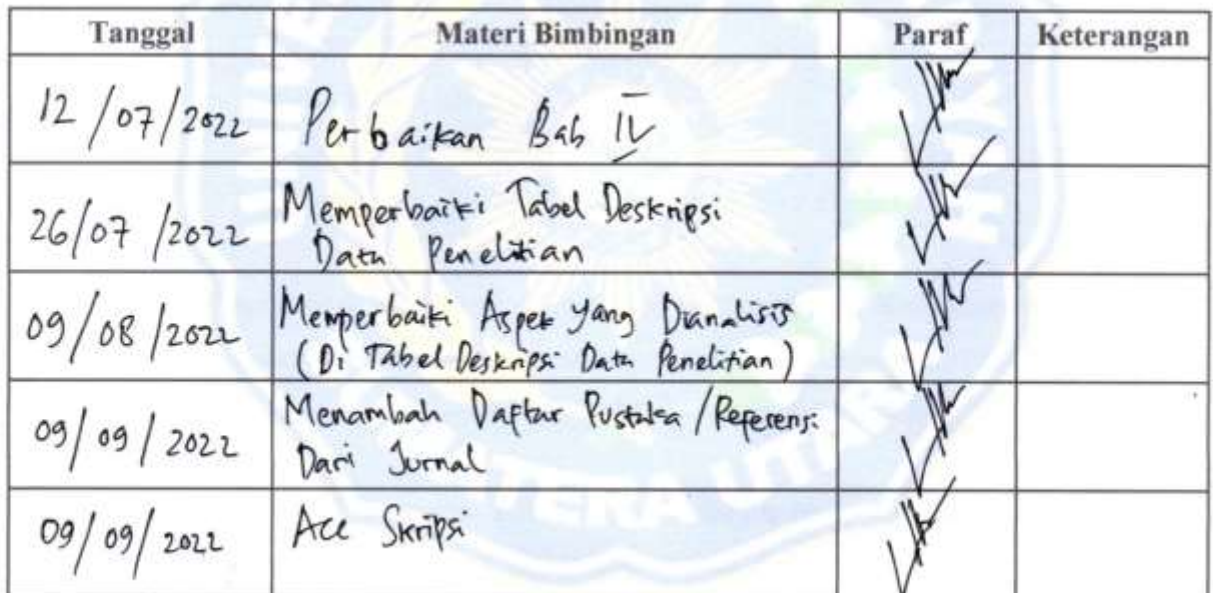 Tanggal Materi Bimbingan Paraf Keterangan
12/07/2022 Perbaikan Bab IV
26/07/2022 Memperbaiki Tabel Deskripsi
Data Penelitian
09/08/2022 Memperbaiki Aspek yang Dianalisis
(Di Tabel Deskripsi Data Penelitian)
09/09/2022 Menambah Daftar Pustaka/Referensi
Dari Jurnal
09/09/2022 Acc Skripsi